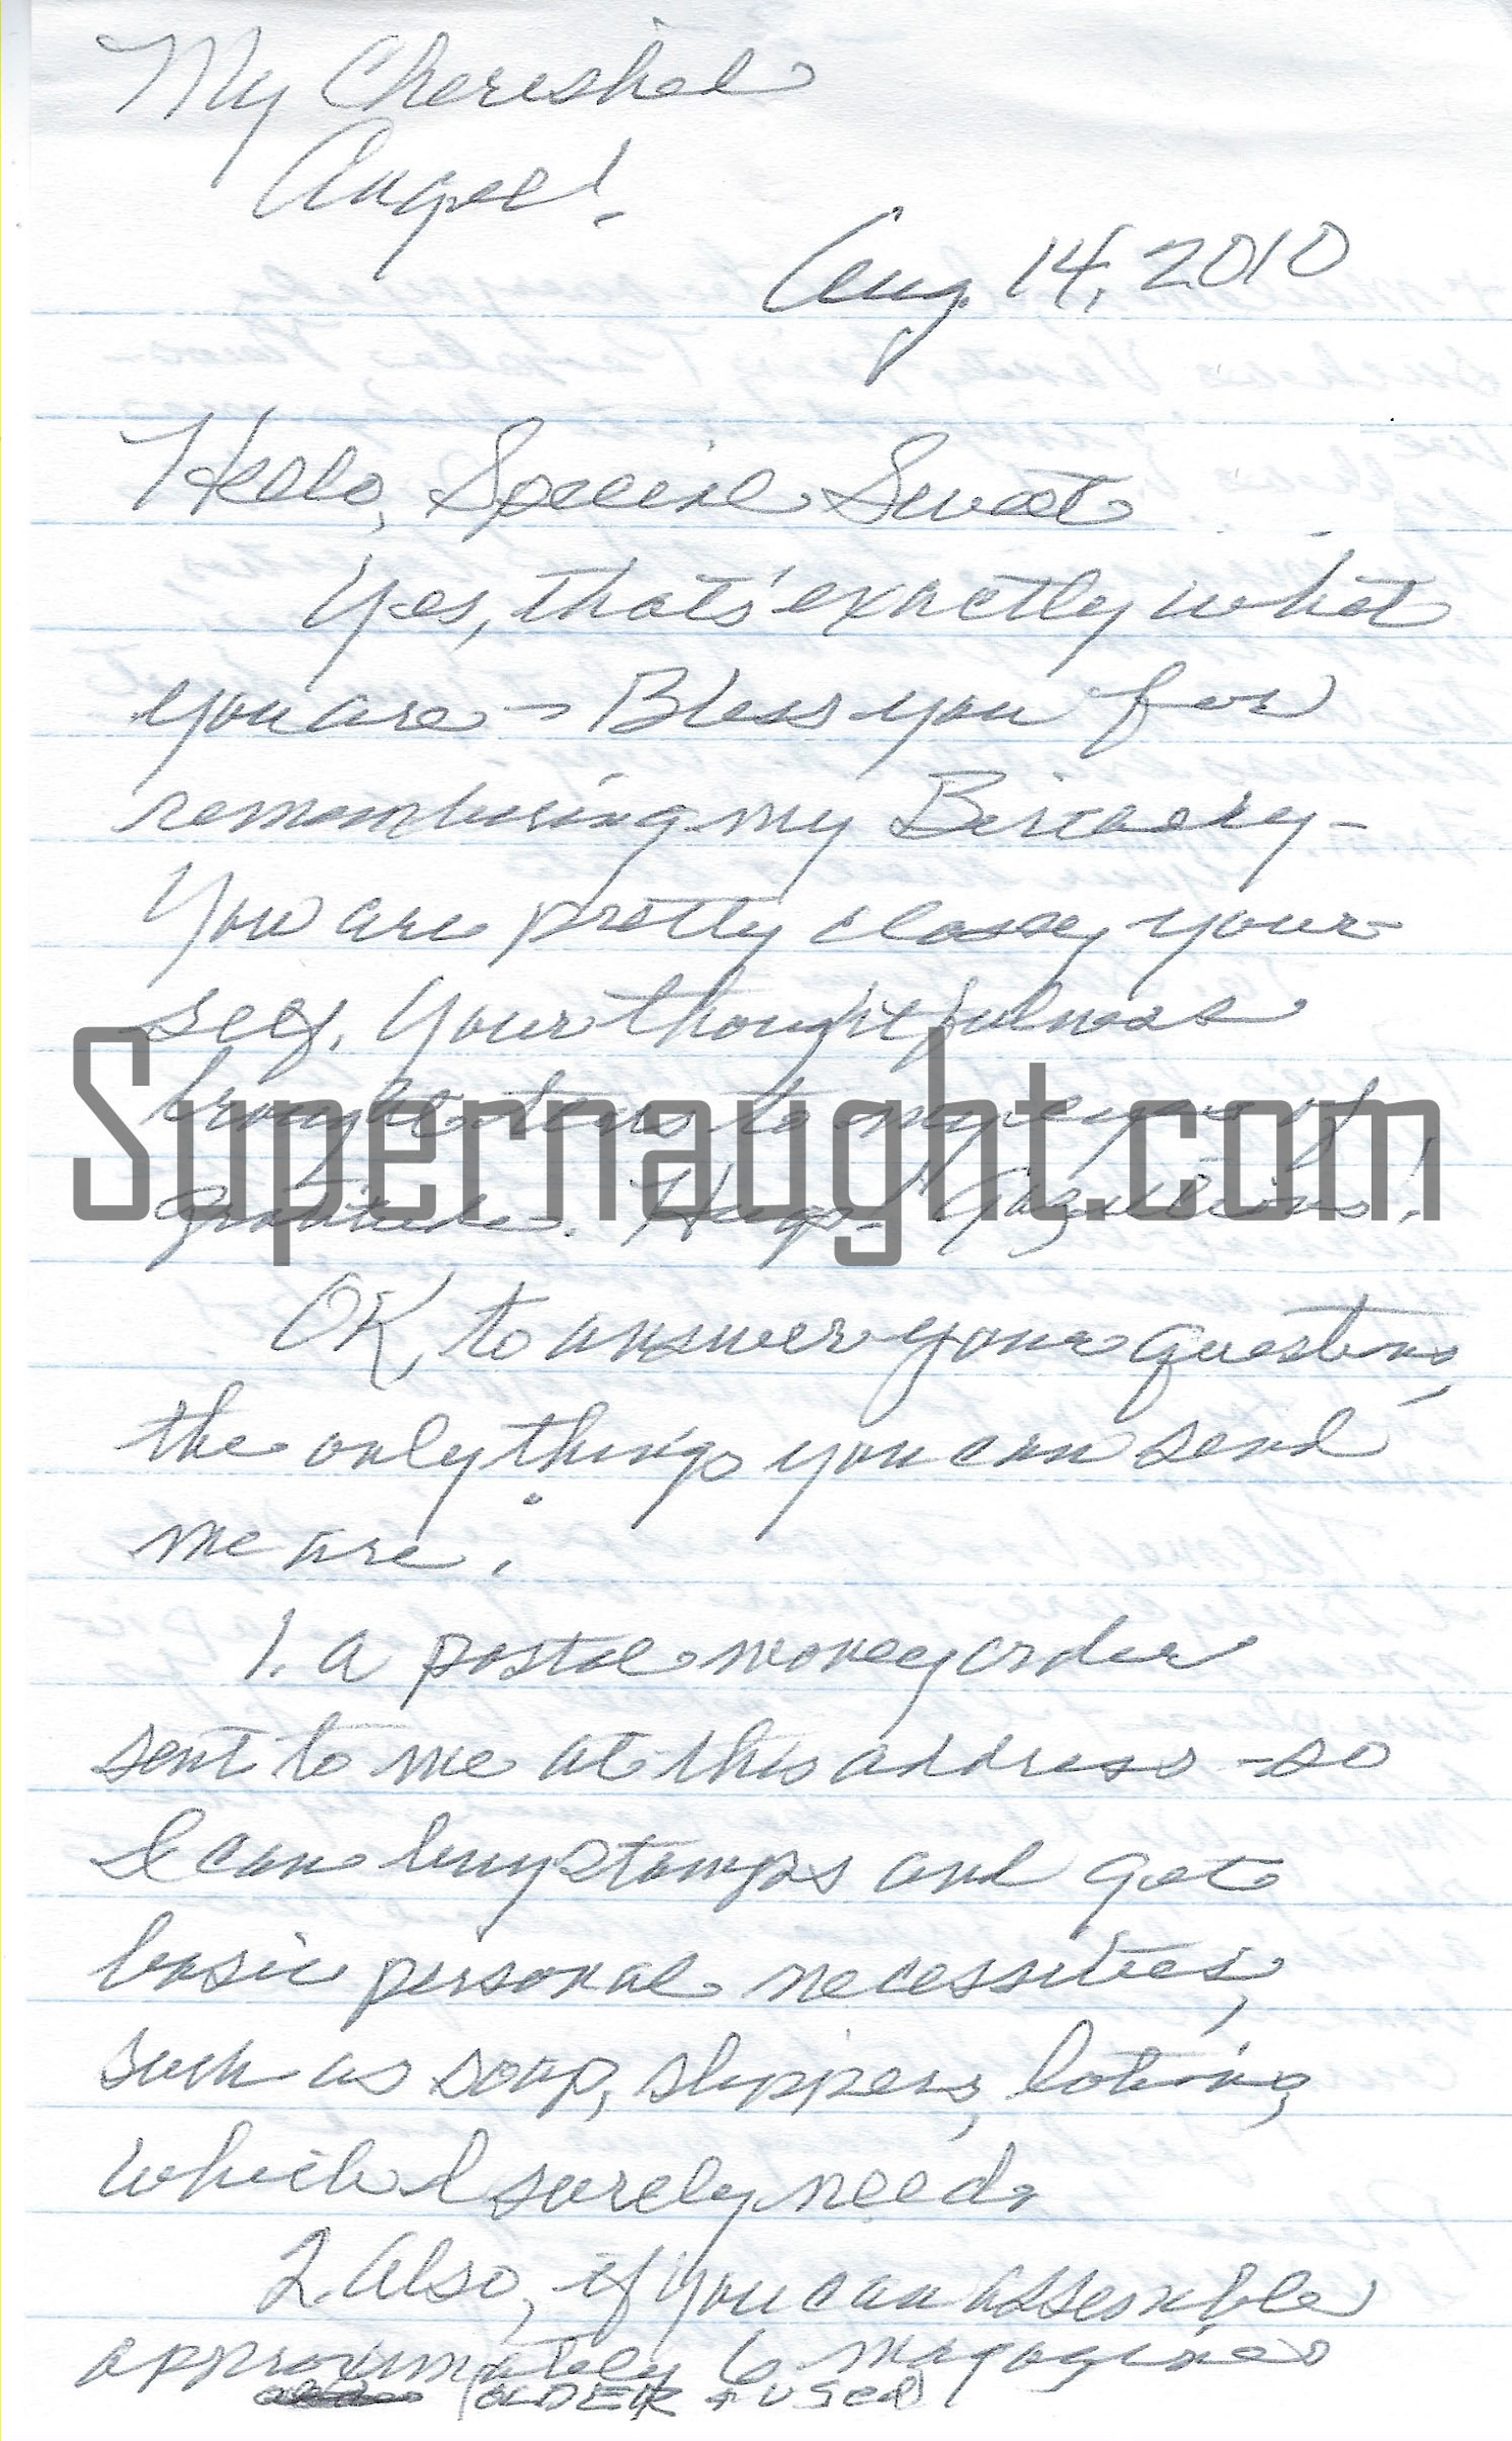 My Cherished
Angel!
Aug. 14, 2010
Hello, Special Sweet
Yes, that's exactly what
you are - Bless you for
remembering my
You are pretty classy your-
self. Your thoughtfulness
brought tears to my eyes of
gratitude. Hugs! Gazillions!
Supernaught.com
OK, to answer your questions,
the only things you can send
me are:
1. a postal money order
sent to me at this address - so
I can buy stamps and get
basic personal necessities,
such as soap, slippers, lotions,
which I surely need.
2. Also, if you can assemble
approximately 6 magazines
(OLDER + USED)